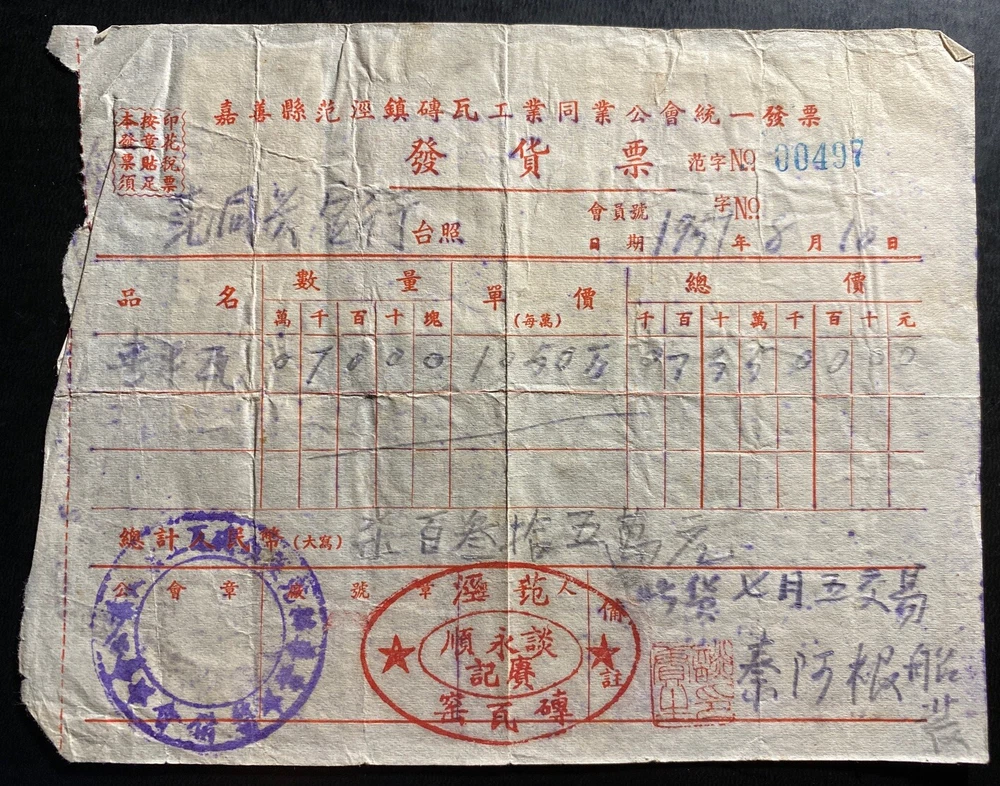 嘉善縣范涇鎮磚瓦工業同業公會統一發票
印花稅票
按章貼足
本發票須
發貨票
范字№ 00497
會員號 字№
范同興窰行 台照
日期 1951年8月10日
品名 數量 單價 總價
萬 千 百 十 塊 (每萬) 千 百 十 萬 千 百 十 元
0 7 0 0 0 1050万 0 7 3 5 0 0 0 0
總計人民幣(大寫) 柒百叁拾五萬元
公會章 號 人 備註
范涇
談永順
賡記
磚瓦窑
貨七月五交易
秦阿根船